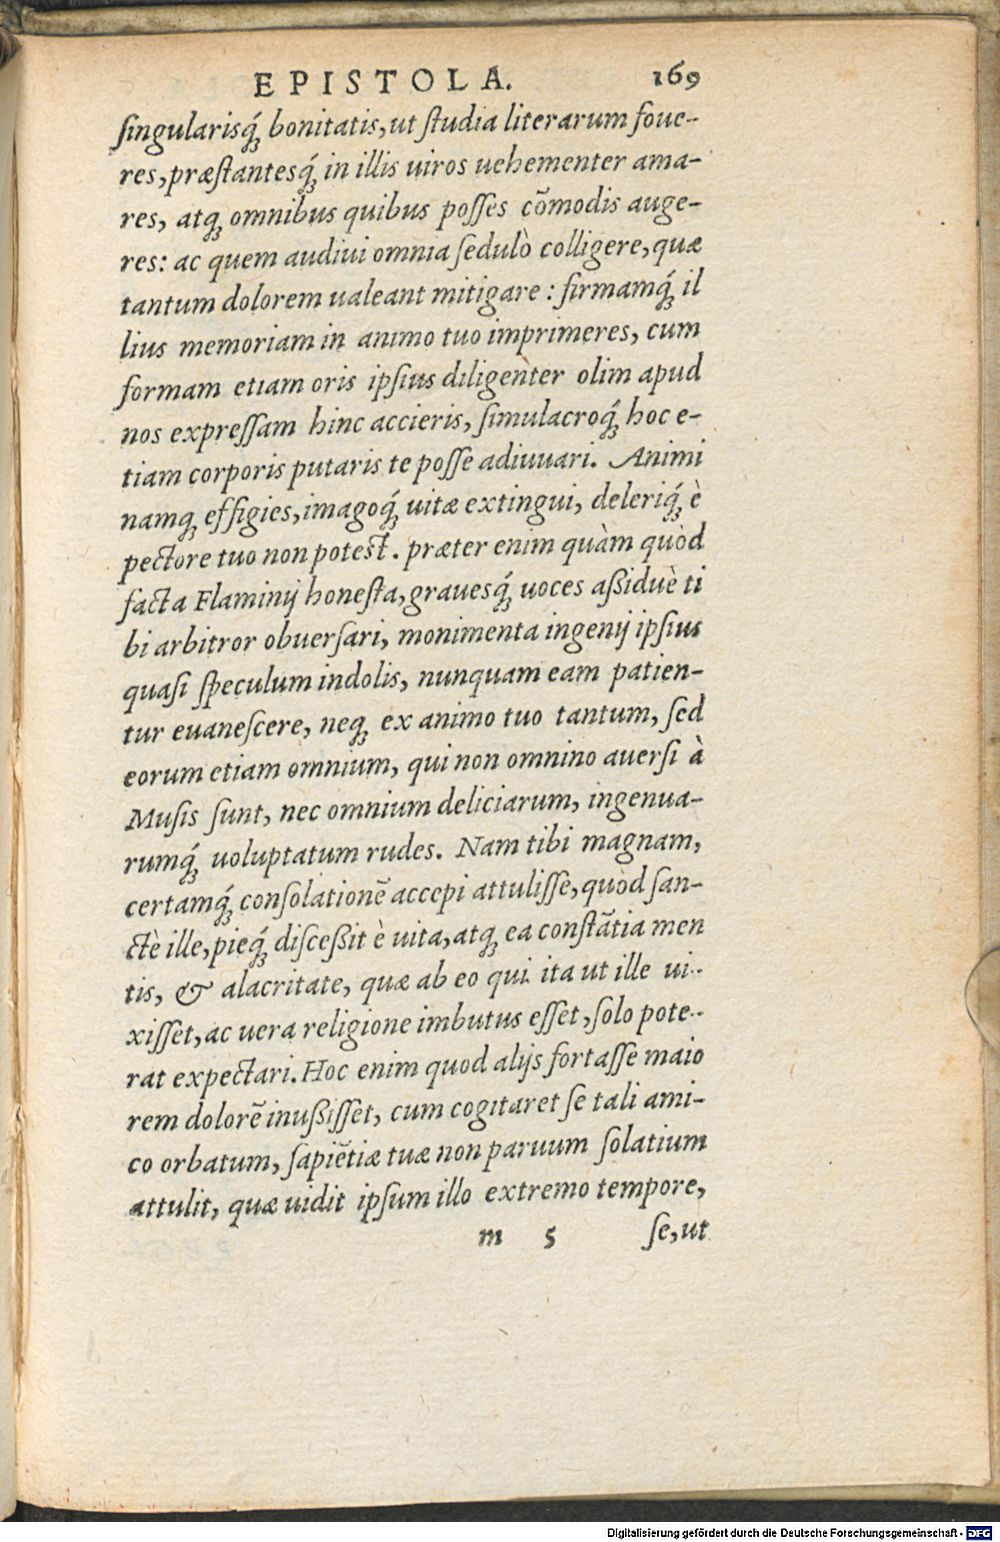 EPISTOLA. 169
ſingularisq́ꝫ bonitatis, ut ſtudia literarum foue-
res, præſtantesq́ꝫ in illis uiros uehementer ama-
res, atqꝫ omnibus quibus poſſes cōmodis auge-
res: ac quem audiui omnia ſedulò colligere, quæ
tantum dolorem ualeant mitigare: firmamq́ꝫ il
lius memoriam in animo tuo imprimeres, cum
formam etiam oris ipſius diligenter olim apud
nos expreſſam hinc accieris, ſimulacroq́ꝫ hoc e-
tiam corporis putaris te poſſe adiuuari. Animi
namqꝫ effigies, imagoq́ꝫ uitæ extingui, deleriq́ꝫ è
pectore tuo non poteſt. præter enim quàm quòd
facta Flaminij honeſta, grauesq́ꝫ uoces aßiduè ti
bi arbitror obuerſari, monimenta ingenij ipſius
quaſi ſpeculum indolis, nunquam eam patien-
tur euaneſcere, neqꝫ ex animo tuo tantum, ſed
eorum etiam omnium, qui non omnino auerſi à
Muſis ſunt, nec omnium deliciarum, ingenua-
rumq́ꝫ uoluptatum rudes. Nam tibi magnam,
certamq́ꝫ conſolationē accepi attuliſſe, quòd ſan-
ctè ille, pieq́ꝫ diſceßit è uita, atqꝫ ea conſtātia men
tis, & alacritate, quæ ab eo qui ita ut ille ui-
xiſſet, ac uera religione imbutus eſſet, ſolo pote-
rat expectari. Hoc enim quod alijs fortaſſe maio
rem dolorē inußiſſet, cum cogitaret ſe tali ami-
co orbatum, ſapiētiæ tuæ non paruum ſolatium
attulit, quæ uidit ipſum illo extremo tempore,
m 5 ſe, ut
Digitalisierung gefördert durch die Deutsche Forschungsgemeinschaft - DFG